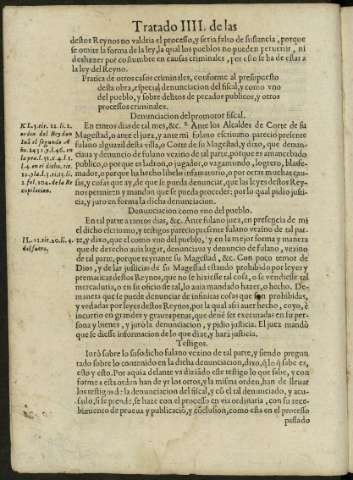 Tratado IIII. de las
destos Reynos no valdria el processo, y seria falso de sustancia, porque
se omite la forma de la ley, la qual los pueblos no pueden peruertir, ni
deshazer por costumbre en causas criminales, por esso se ha de estar a
la ley del Reyno.
Pratica de otros casos criminales, conforme al presupuesto
desta obra, especial denunciacion del fiscal, y como vno
del pueblo, y sobre delitos de pecados publicos, y otros
processos criminales.
Denunciacion del promotor fiscal.
En tantos dias de tal mes, &c. Ante los Alcaldes de Corte de su
Magestad, o ante el juez, y ante mi fulano escriuano parecio presente
fulano alguazil desta villa, o Corte de su Magestad, y dixo, que denun-
ciaua y denuncio de fulano vezino de tal parte, porque es amancebado
publico, o porque es ladron, o jugador, o vagamundo, logrero, blasfe-
mador, o porque ha hecho libelo infamatorio, o por otras muchas cau-
sas, y cosas que ay, de que se puede denunciar, que las leyes destos Rey-
nos permiten y mandan que se pueda proceder: por lo qual pidio justi-
cia, y juro en forma la dicha denunciacion.
Denunciacion como vno del pueblo.
En tal parte a tantos dias, &c. Ante fulano juez, en presencia de mi
el dicho escriuano, y testigos parecio presente fulano vezino de tal par-
te, y dixo, que el como vno del pueblo, y en la mejor forma y manera
que de derecho auia lugar, denunciaua y denuncio de fulano, vezino
de tal parte, porque reynante su Magestad, &c. Con poco temor de
Dios, y de las justicias de su Magestad estando prohibido por leyes y
prematicas destos Reynos, que no se hiziesse tal cosa, o se vendiesse tal
mercaduria, o en su oficio se tal, lo auia mandado hazer, o hecho. De-
manera que se puede denunciar de infinitas cosas que son prohibidas,
y vedadas por leyes destos Reynos, por la qual assi auer hecho,
incurrio en grandes y graues penas, que deuē ser executadas en su per
sona y bienes, y jurò la denunciacion, y pidio justicia. El juez mandò
que se diesse informacion de lo que dize, y harà justicia.
Testigos.
Iurò sobre lo susodicho fulano vezino de tal parte, y siendo pregun
tado sobre lo contenido en la dicha denunciacion, dixo, q̃ lo q̃ sabe es,
esto y esto. Por aquia delante va diziēdo este testigo lo que sabe, y con
forme a esta orden han de yr los otros, y la misma orden han de lleuar
los testigos de la denunciacion del fiscal, y cō el tal denunciado, y acu-
sado, si se prende, se haze con el processo en via ordinaria, con su rece-
bimiento de prueua y publicaciō, y cōclusion, como esta en el processo
passado